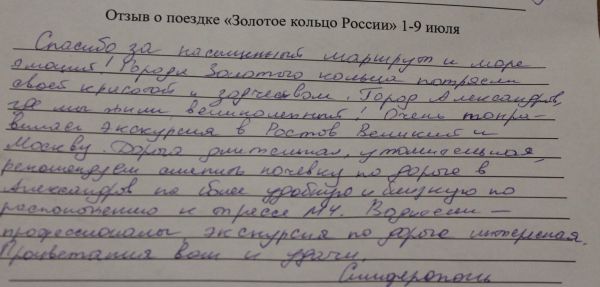 Отзыв о поездке «Золотое кольцо России» 1-9 июля
Спасибо за насыщенный маршрут и море
эмоций! Города Золотого кольца потрясли
своей красотой и зодчеством. Город Александров,
где мы жили, великолепный! Очень понра-
вилась экскурсия в Ростов Великий и
Москву. Дорога длительная, утомительная,
рекомендуем сменить ночевку по дороге в
Александров на более удобную и близкую по
расположению к трассе М4. Водители —
профессионалы экскурсия по дороге интересная.
Процветания вам и удачи.
Симферополь